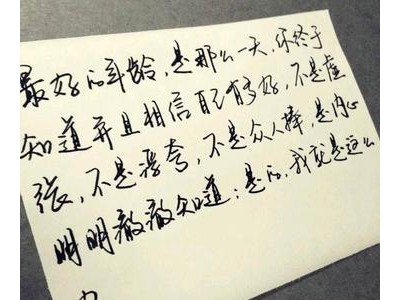 最好的年龄，是那么一天，你终于
知道并且相信自己有多好，不是虚
张，不是浮夸，不是众人捧，是内心
明明澈澈知道：是的，我就是这么